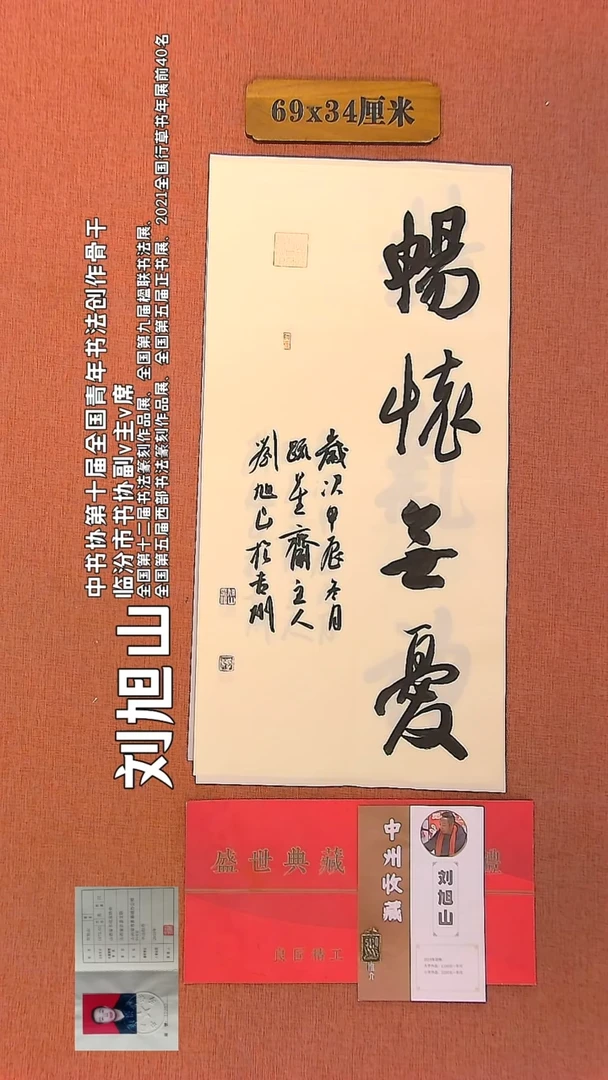 69x34厘米
暢懷無憂
歲次甲辰冬月
齋主人
劉旭山於吉州
刘旭山
中书协第十届全国青年书法创作骨干
临汾市书协副v主v席
全国第十二届书法篆刻作品展、全国第九届楹联书法展、
全国第五届西部书法篆刻作品展、全国第五届正书展、2021全国行草书年展前40名
盛世典藏
中州收藏
刘旭山